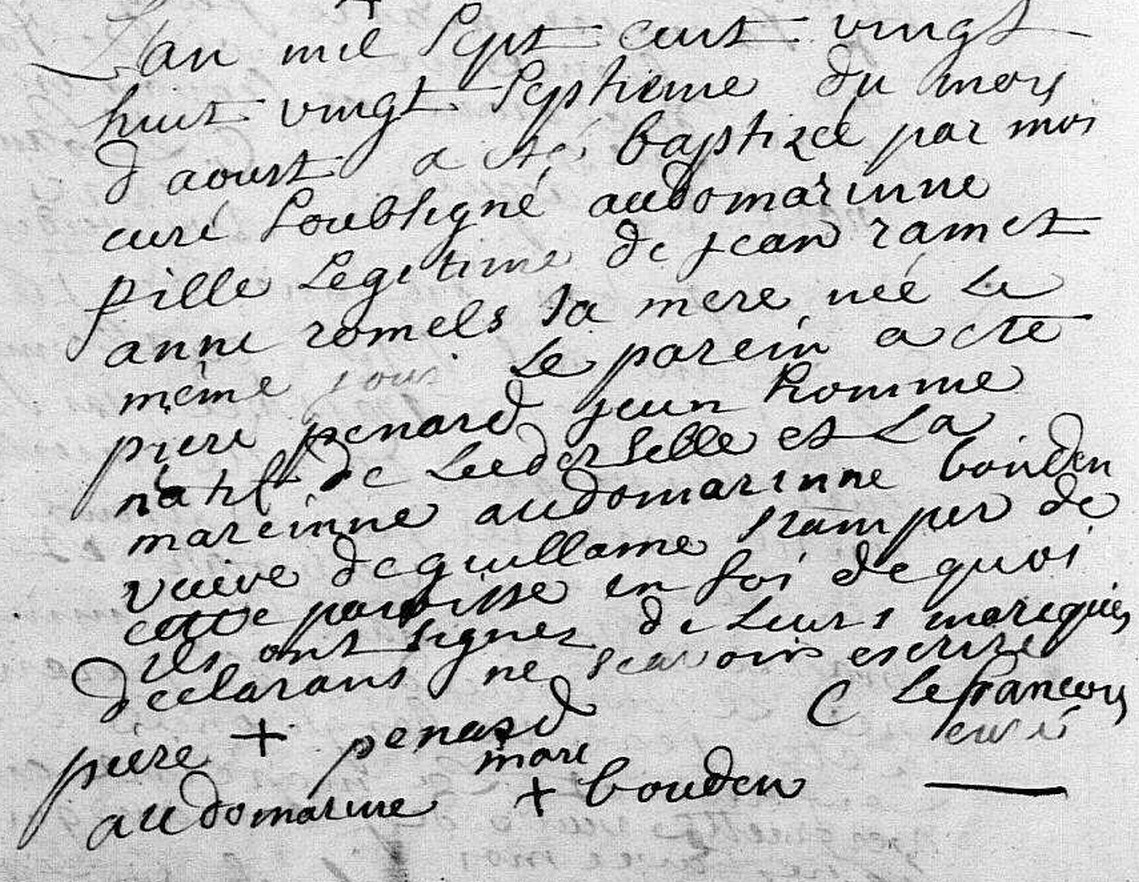 L'an mil sept cent vingt
huit vingt septieme du mois
d'aoust a été baptizée par moi
curé soubsigné audomarinne
fille legitime de jean ramet
anne romels sa mere née le
même jour le parein a eté
piere penard jeun homme
natif de Lederselle et La
mareinne audomarinne bouden
veuve de guillame stamper de
cette paroisse en foi de quoi
ils ont signez de leurs marques
declarans ne scavoir escrire
C Lefrancois
curé
piere + penard
marc
audomarine + bouden